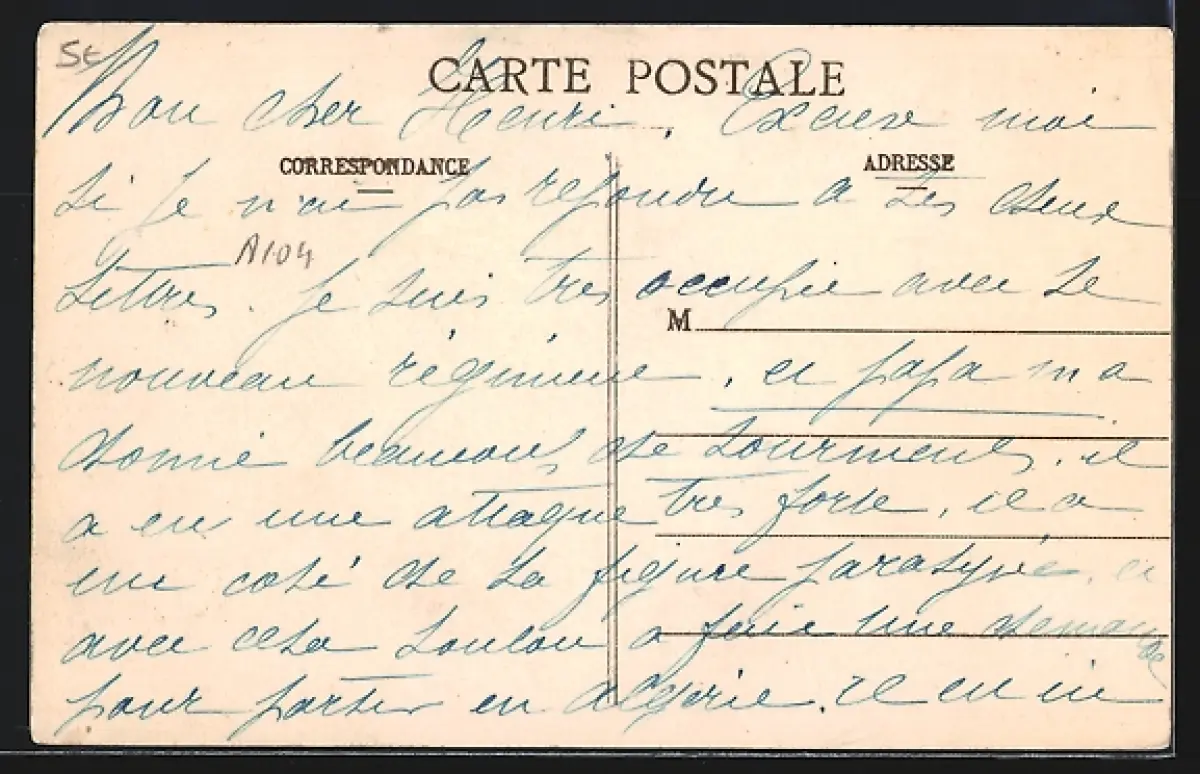 St
CARTE POSTALE
Mon cher Henri. Excuse moi
CORRESPONDANCE
ADRESSE
si je n'ai pas repondu a tes deux
A104
lettres. Je suis tres occupie avec le
M
nouveau régiment, et papa m a
donnie beaucoup de tourments. il
a eu une attaque tres forte, il a
un coté de la figure paralysée, et
avec cela Loulou a fait une demande
pour partir en algerie. il en